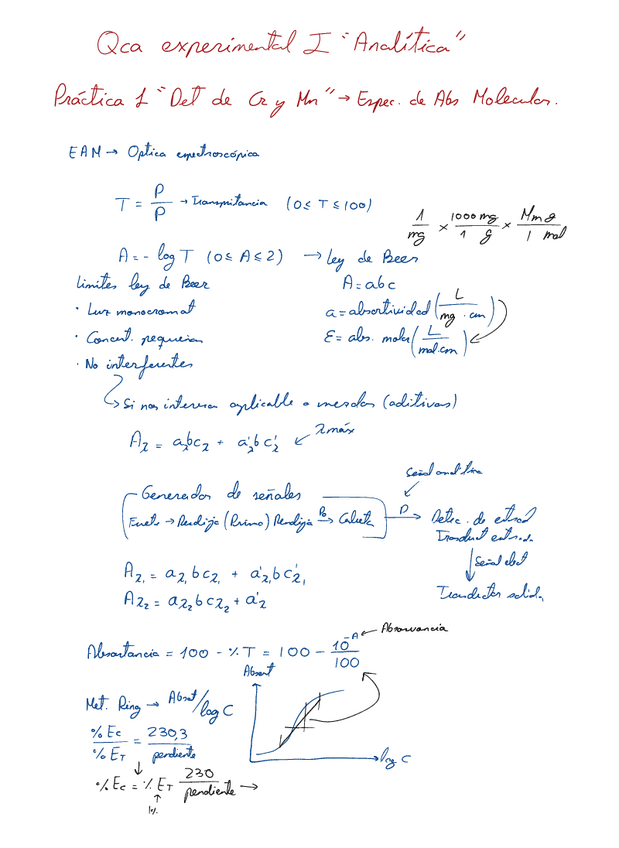 Qca experimental I "Analítica"
Práctica 1 "Det de Cr y Mn" → Espec. de Abs Molecular.
EAM → Optica espectroscópica
T = P/P → Transmitancia (0 ≤ T ≤ 100)
1/mg × 1000 mg/1 g × Mm g/1 mol
A = - log T (0 ≤ A ≤ 2) → Ley de Beer
Limites ley de Beer
A = abc
· Luz monocromat
a = absortividad (L/mg · cm)
· Concent. pequeñas
ε = abs. molar (L/mol·cm)
· No interferentes
Si nos interesa aplicable a mezclas (aditivas)
λ máx
Aλ = aλbcλ + a'λbc'λ
Señal analítica
Generador de señales
Fuente → Rendija (Prisma) Rendija P₀→ Cubeta P → Detec. de entrad
Transduct entrada
Señal elect
Transductor salida
Aλ₁ = aλ₁bcλ₁ + a'λ₁bc'λ₁
Aλ₂ = aλ₂bcλ₂ + a'λ
Absortancia = 100 - % T = 100 - 10^-A/100 ← Absorvancia
Absort
Met. Ring → Absat/log C
% Ec/% ET = 230,3/pendiente
log C
% Ec = % ET 230/pendiente →
1%